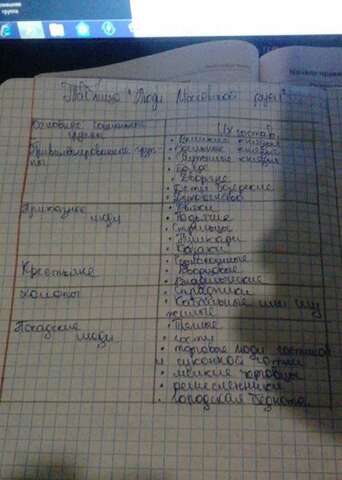 Таблица "Люди Московской Руси"
Основные социальные группы
Их состав
Привилегированные группы
• Великие князья
• Удельные князья
• Служилые князья
• Бояре
• Дворяне
• Дети боярские
• Духовенство
Приказные люди
• Дьяки
• Подьячие
• Стрельцы
• Пушкари
• Казаки
Крестьяне
• Черносошные
• Дворцовые
• Владельческие
Холопы
• Страдники
• Кабальные или служилые
Посадские люди
• Полные
• гости
• торговые люди гостиной и суконной сотни
• мелкие торговцы
• ремесленники
• городская беднота